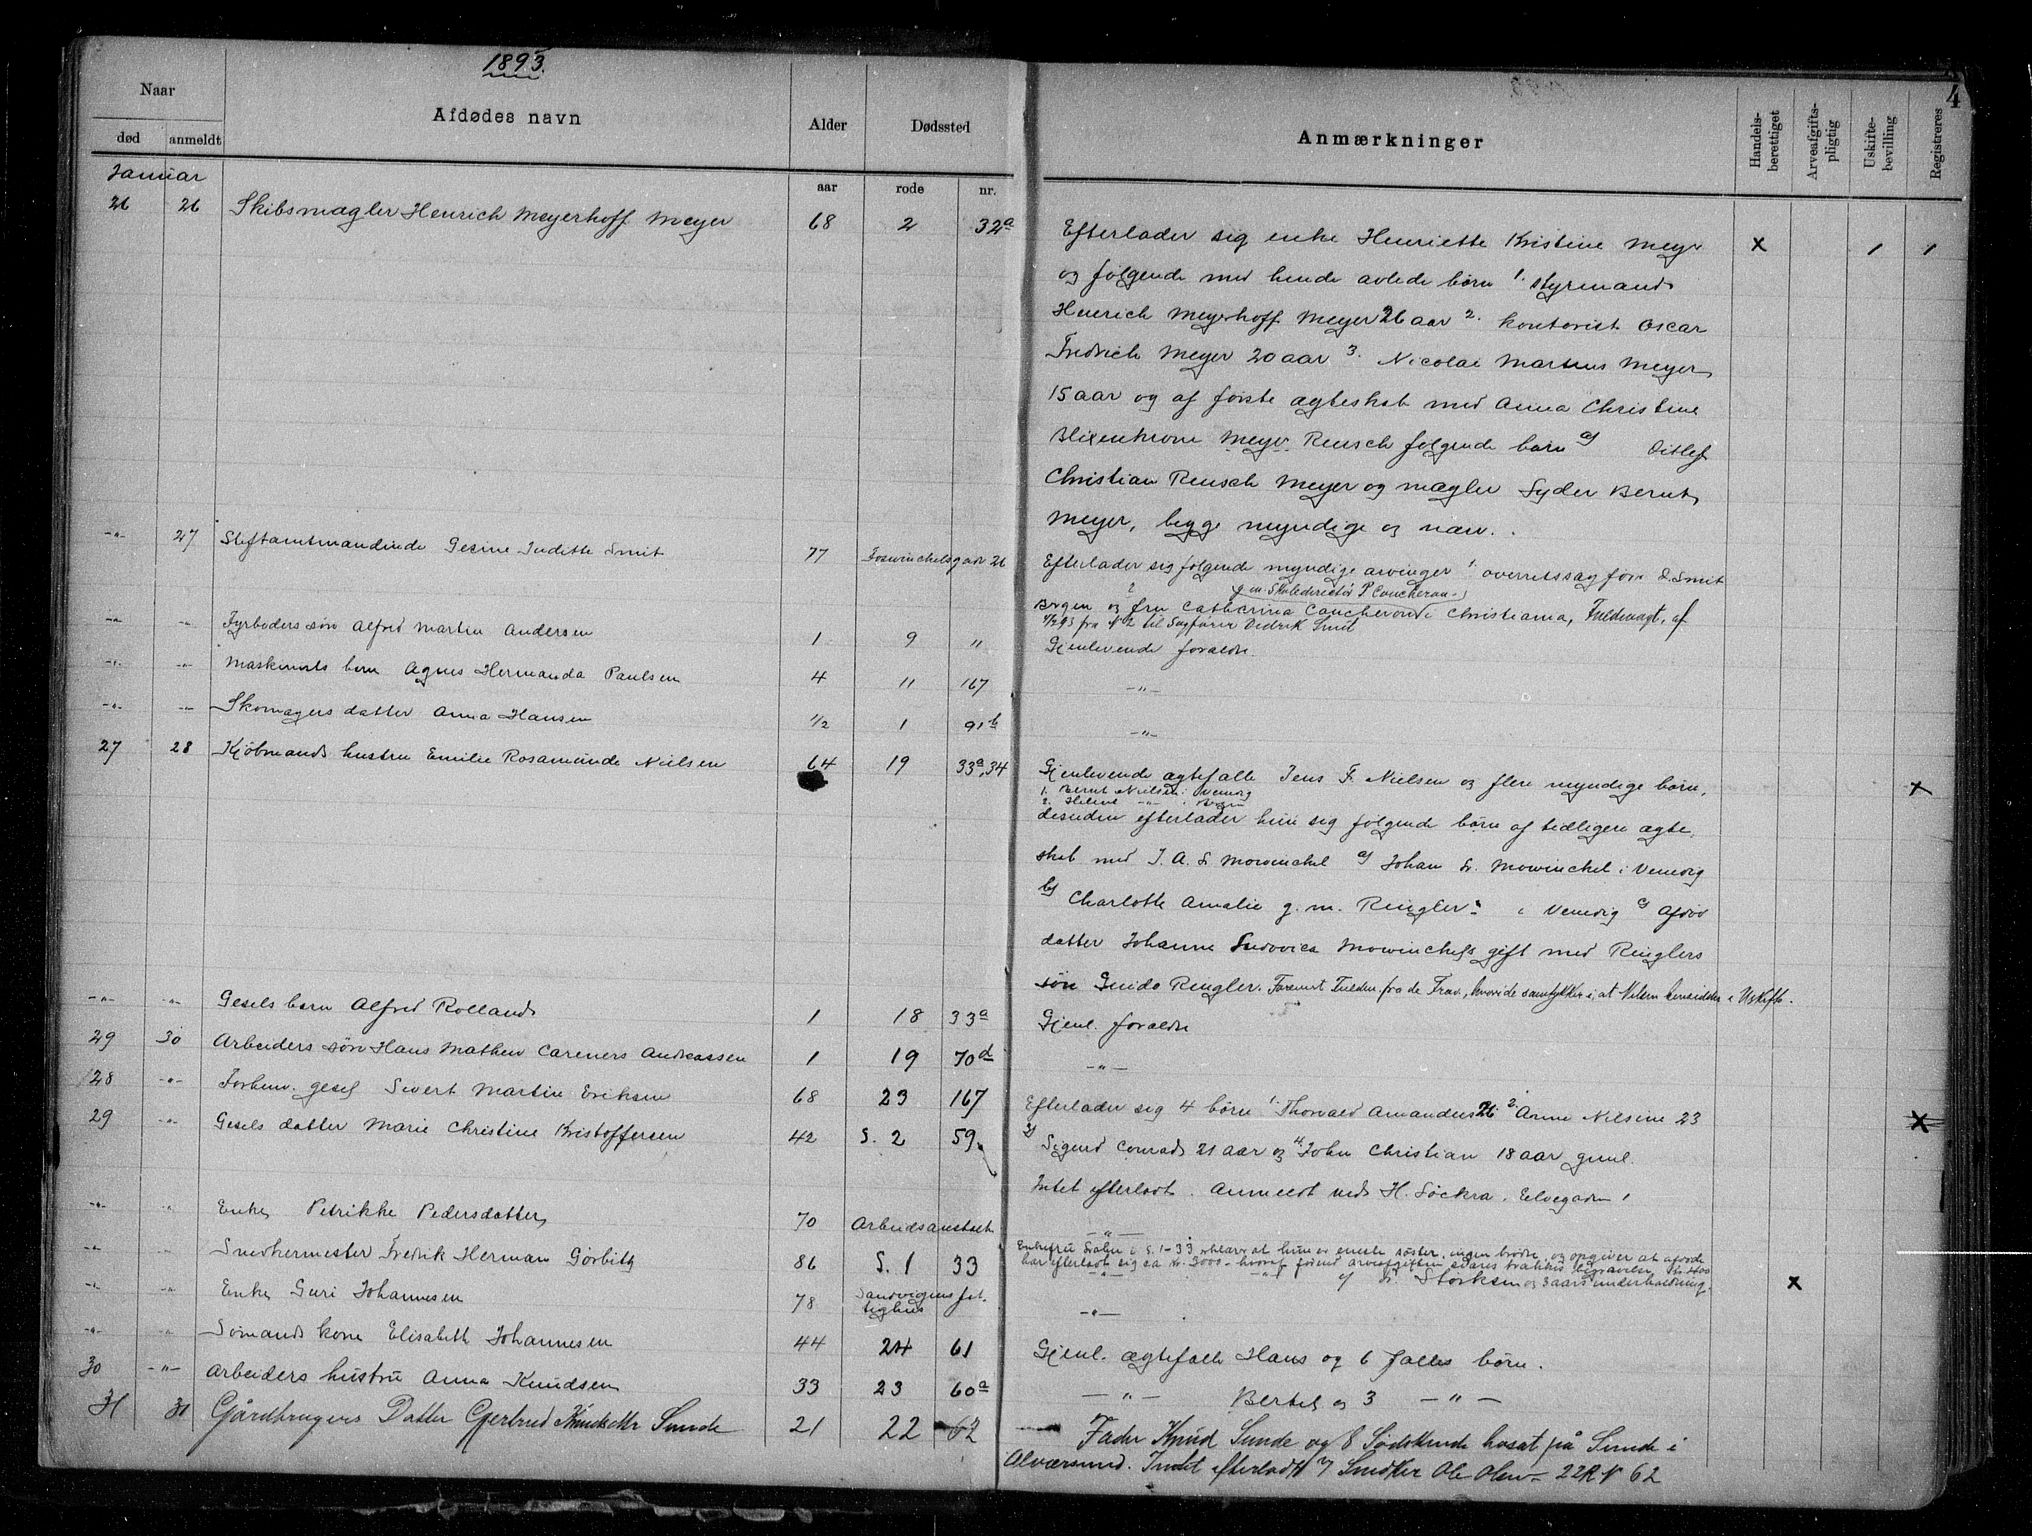 1893.
4
Naar
Afdødes navn
Alder
Dødssted
Anmærkninger
Handels-
berettiget
Arveafgifts-
pligtig
Uskifte-
bevilling
Registreres
død anmeldt
aar rode nr.
Januar
26 26 Skibsmægler Henrich Meyerhoff Meyer 68 2 32a
Efterlader sig enke Henriette Kristine Meyer x 1 1
og følgende med hende avlede børn 1. styrmand
Henrich Meyerhoff Meyer 26 aar 2. kontorist Oscar
Fredrich Meyer 20 aar 3. Nicolai Martens Meyer
15 aar og af første ægteskab med Anna Christine
Blixenkrone Meyer Reusch følgende børn a) Ditlef
Christian Reusch Meyer og mægler Syder Bernt
Meyer, begge myndige og nær.
-"- 27 Stiftamtmandinde Gesine Judette Smit 77 Foswinckelsgade 26
Efterlader sig følgende myndige arvinger 1. overretssagfører D. Smit
2 g. m. Skoledirektør P Coucheron
Bergen og fru Catherina Coucheron i Christiania, Fuldmagt, af
fra No 2 til Sagfører Didrik Smit
-"- -"- Fyrbøders søn Alfred Martin Andersen 1 9 "
Gjenlevende forældre.
-"- -"- Maskinists barn Agnes Hermanda Paulsen 4 11 167
-"-
-"- -"- Skomagers datter Anna Hansen 1/2 1 91b
-"-
27 28 Kjøbmands hustru Emilie Rosamunde Nielsen 64 19 33a,34
Gjenlevende ægtefælle Jens F. Nielsen og flere myndige børn, x
1. Bernt Nielsen i Venedig
2. Helene -"- i Bergen
desuden efterlader hun sig følgende børn af tidligere ægte
skab med J. A. S. Mowinckel a) Johan S. Mowinckel i Venedig
b) Charlotte Amalie g. m. Ringler i Venedig c) Afdød
datter Johanne Ludovica Mowinckels gift med Ringlers
søn Guido Ringler. fra de Frav., hvori de samtykker i, at Nilsen hensidder i Uskifte.
-"- -"- Gesels barn Alfred Rolland 1 18 33a
Gjenl. forældre
29 30 Arbeiders søn Hans Mathew Careners Andreassen 1 19 70d
-"-
28 -"- Forhenv. gesel Sivert Martin Eriksen 68 23 167
Efterlader sig 4 børn 1. Thorvald Amandus 26 2. Anne Nilsine 23 x
29 -"- Gesels datter Marie Christine Kristoffersen 42 S. 2 59.
3) Sigurd Conrad 21 aar og 4. John Christian 18 aar gjenl.
Intet efterladt. Anmeldt ved H. Söckra, Elvegaden 1
-"- " Enke Petrikke Pedersdatter 70 Arbeidsanstalt
-"-
-"- " Snedkermester Fredrik Herman Görbitz 86 S. 1 33
Enkefru i S. 1-33 erklærer at hun er eneste søster, ingen brødre, og opgiver at afdøde
har efterladt sig ca kr. 3000 - hvoraf førend arveafgiften svares trækkes begravelse, kr 400
-"- -"- af Storksen og 3 aars underholdning. x
-"- " Enke Guri Johannesen 78 Sandvigens fat-
tighus
-"-
-"- " Sømands kone Elisabeth Johannesen 44 24 61
Gjenl. ægtefælle Hans og 6 fælles børn.
30 -"- Arbeiders hustru Anna Knudsen 33 23 60a
-"- Bertel og 3 -"-
31 31 Gårdbrugers Datter Gjertrud Knudsdtr Sunde 21 22 62
Fader Knud Sunde og 8 Sødskende bosat på Sunde i
Alværsund. Intet efterladt Snedker Ole Olsen - 22 R No 62